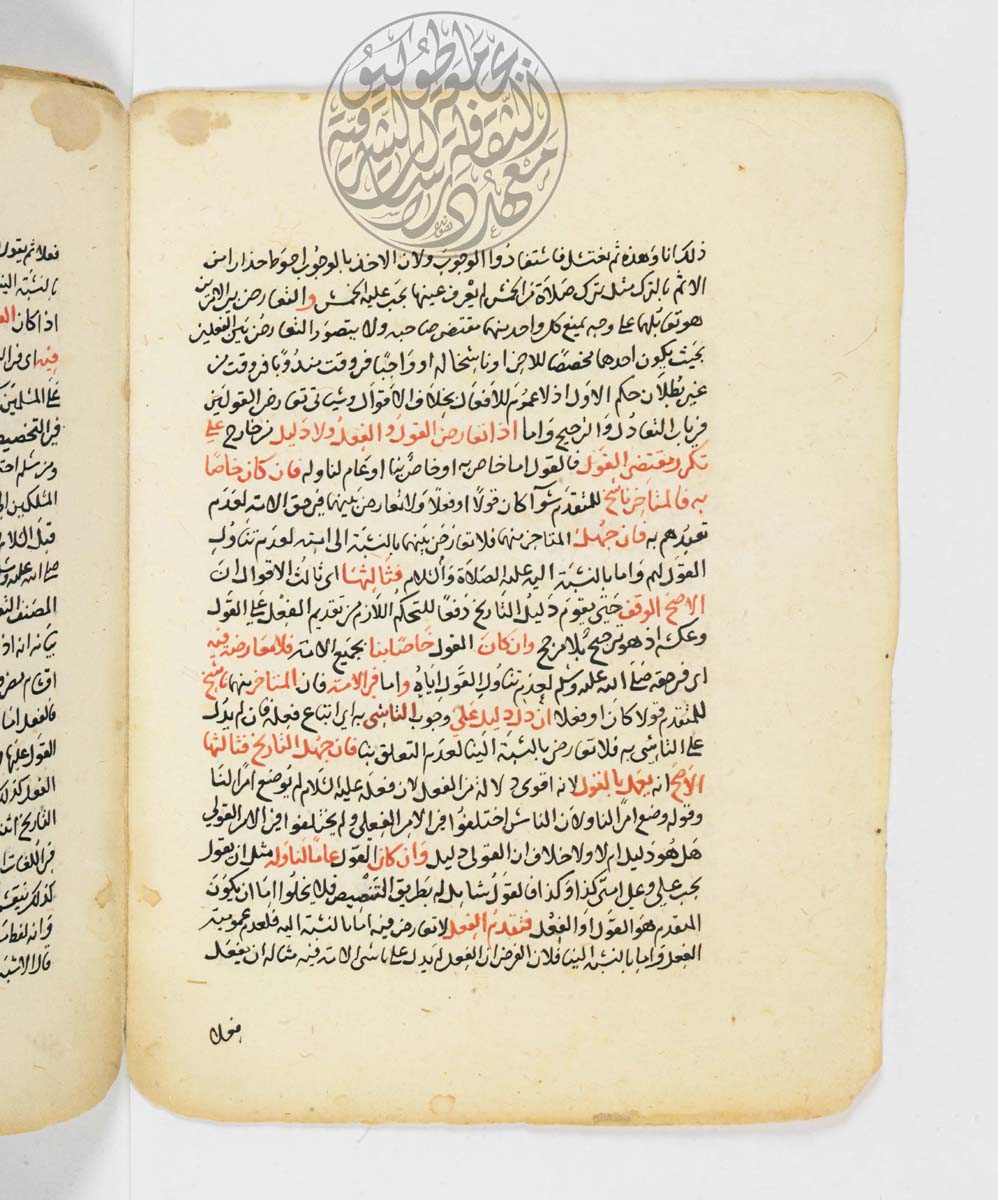 معهد دراسات الثقافة الشرقية جامعة طوكيو
ذلك انا وهذه ثم نغتسل فاستفادوا الوجوب ولان الاخذ بالوجوب احوط حذارا من
الاثم بالترك مثل ترك صلاة من الخمس لم يعرف عينها يجب عليه الخمس والتعارض بين الامرين
هو تقابلهما على وجه يمنع كل واحد منهما مقتضى صاحبه ولا يتصور التعارض بين الفعلين
بحيث يكون احدهما مخصصا للاخر او ناسخا له او واجبا في وقت مندوبا في وقت من
غير بطلان حكم الاول اذ لا عموم للافعال بخلاف الاقوال وسياتي تعارض القولين
في باب التعادل والترجيح واما اذا تعارض القول والفعل ولا دليل من خارج على
تكرر مقتضى القول فالقول اما خاص به او خاص بنا او عام لنا وله فان كان خاصا
به فالمتاخر ناسخ للمتقدم سوآ كان قولا او فعلا ولا تعارض بينهما في حق الامة لعدم
تعبدهم به فان جهل المتاخر منهما فلا تعارض بينهما بالنسبة الى امته لعدم تناول
القول لهم واما بالنسبة اليه عليه الصلاة والسلام فثالثها اي ثالث الاقوال ان
الاصح الوقف حتى يقوم دليل التاريخ دفعا للتحكم اللازم من تقديم الفعل على القول
وعكسه اذ هو ترجيح بلا مرجح وان كان القول خاصا بنا بجميع الامة فلا معارضة فيه
اي في حقه صلى الله عليه وسلم لعدم تناول القول اياه واما في الامة فان المتاخر منهما ناسخ
للمتقدم قولا كان او فعلا ان دل دليل على وجوب التاسي به اي اتباع فعله فان لم يدل
على التاسي به فلا تعارض بالنسبة الينا لعدم التعلق بنا فان جهل التاريخ فثالثها
الاصح انه يعمل بالقول لانه اقوى دلالة من الفعل لان فعله عليه السلام لم يوضع امرا لنا
وقوله وضع امرا لنا ولان الناس اختلفوا في الامر الفعلي ولم يختلفوا في الامر القولي
هل هو دليل ام لا ولا خلاف ان القولي دليل وان كان القول عاما لنا وله مثل ان يقول
يجب علي وعلى امتي كذا وكذا فالقول شامل له بطريق التنصيص فلا يخلوا اما ان يكون
المتقدم هو القول او الفعل فتقدم الفعل لا تعارض فيه اما بالنسبة اليه فلعدم عمومية
الفعل واما بالنسبة الينا فلان الفرض ان الفعل لم يدل على تاسي الامة فيه مثاله ان يفعل
فعلا ثم يقول
بالنسبة الينا
اذا كان
فيه اي في
على المسلمين
في التخصيص
قبل
المصنف
بيانه انه اذا
فالفعل اما
القول عليها
القول كذلك
التاريخ